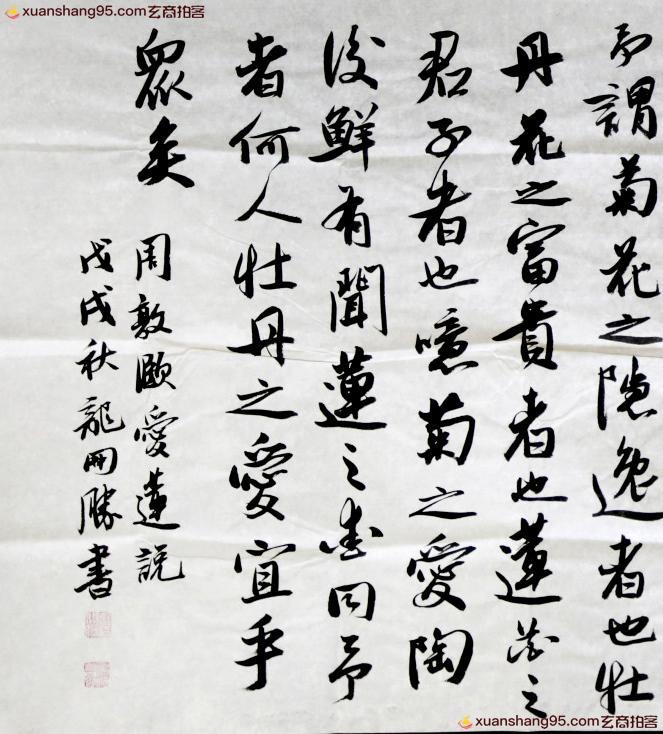 xuanshang95.com玄商拍客
予謂菊花之隱逸者也牡
丹花之富貴者也蓮花之
君子者也噫菊之愛陶
後鮮有聞蓮之愛同予
者何人牡丹之愛宜乎
眾矣
周敦頤愛蓮説
戊戌秋龍開勝書
xuanshang95.com玄商拍客